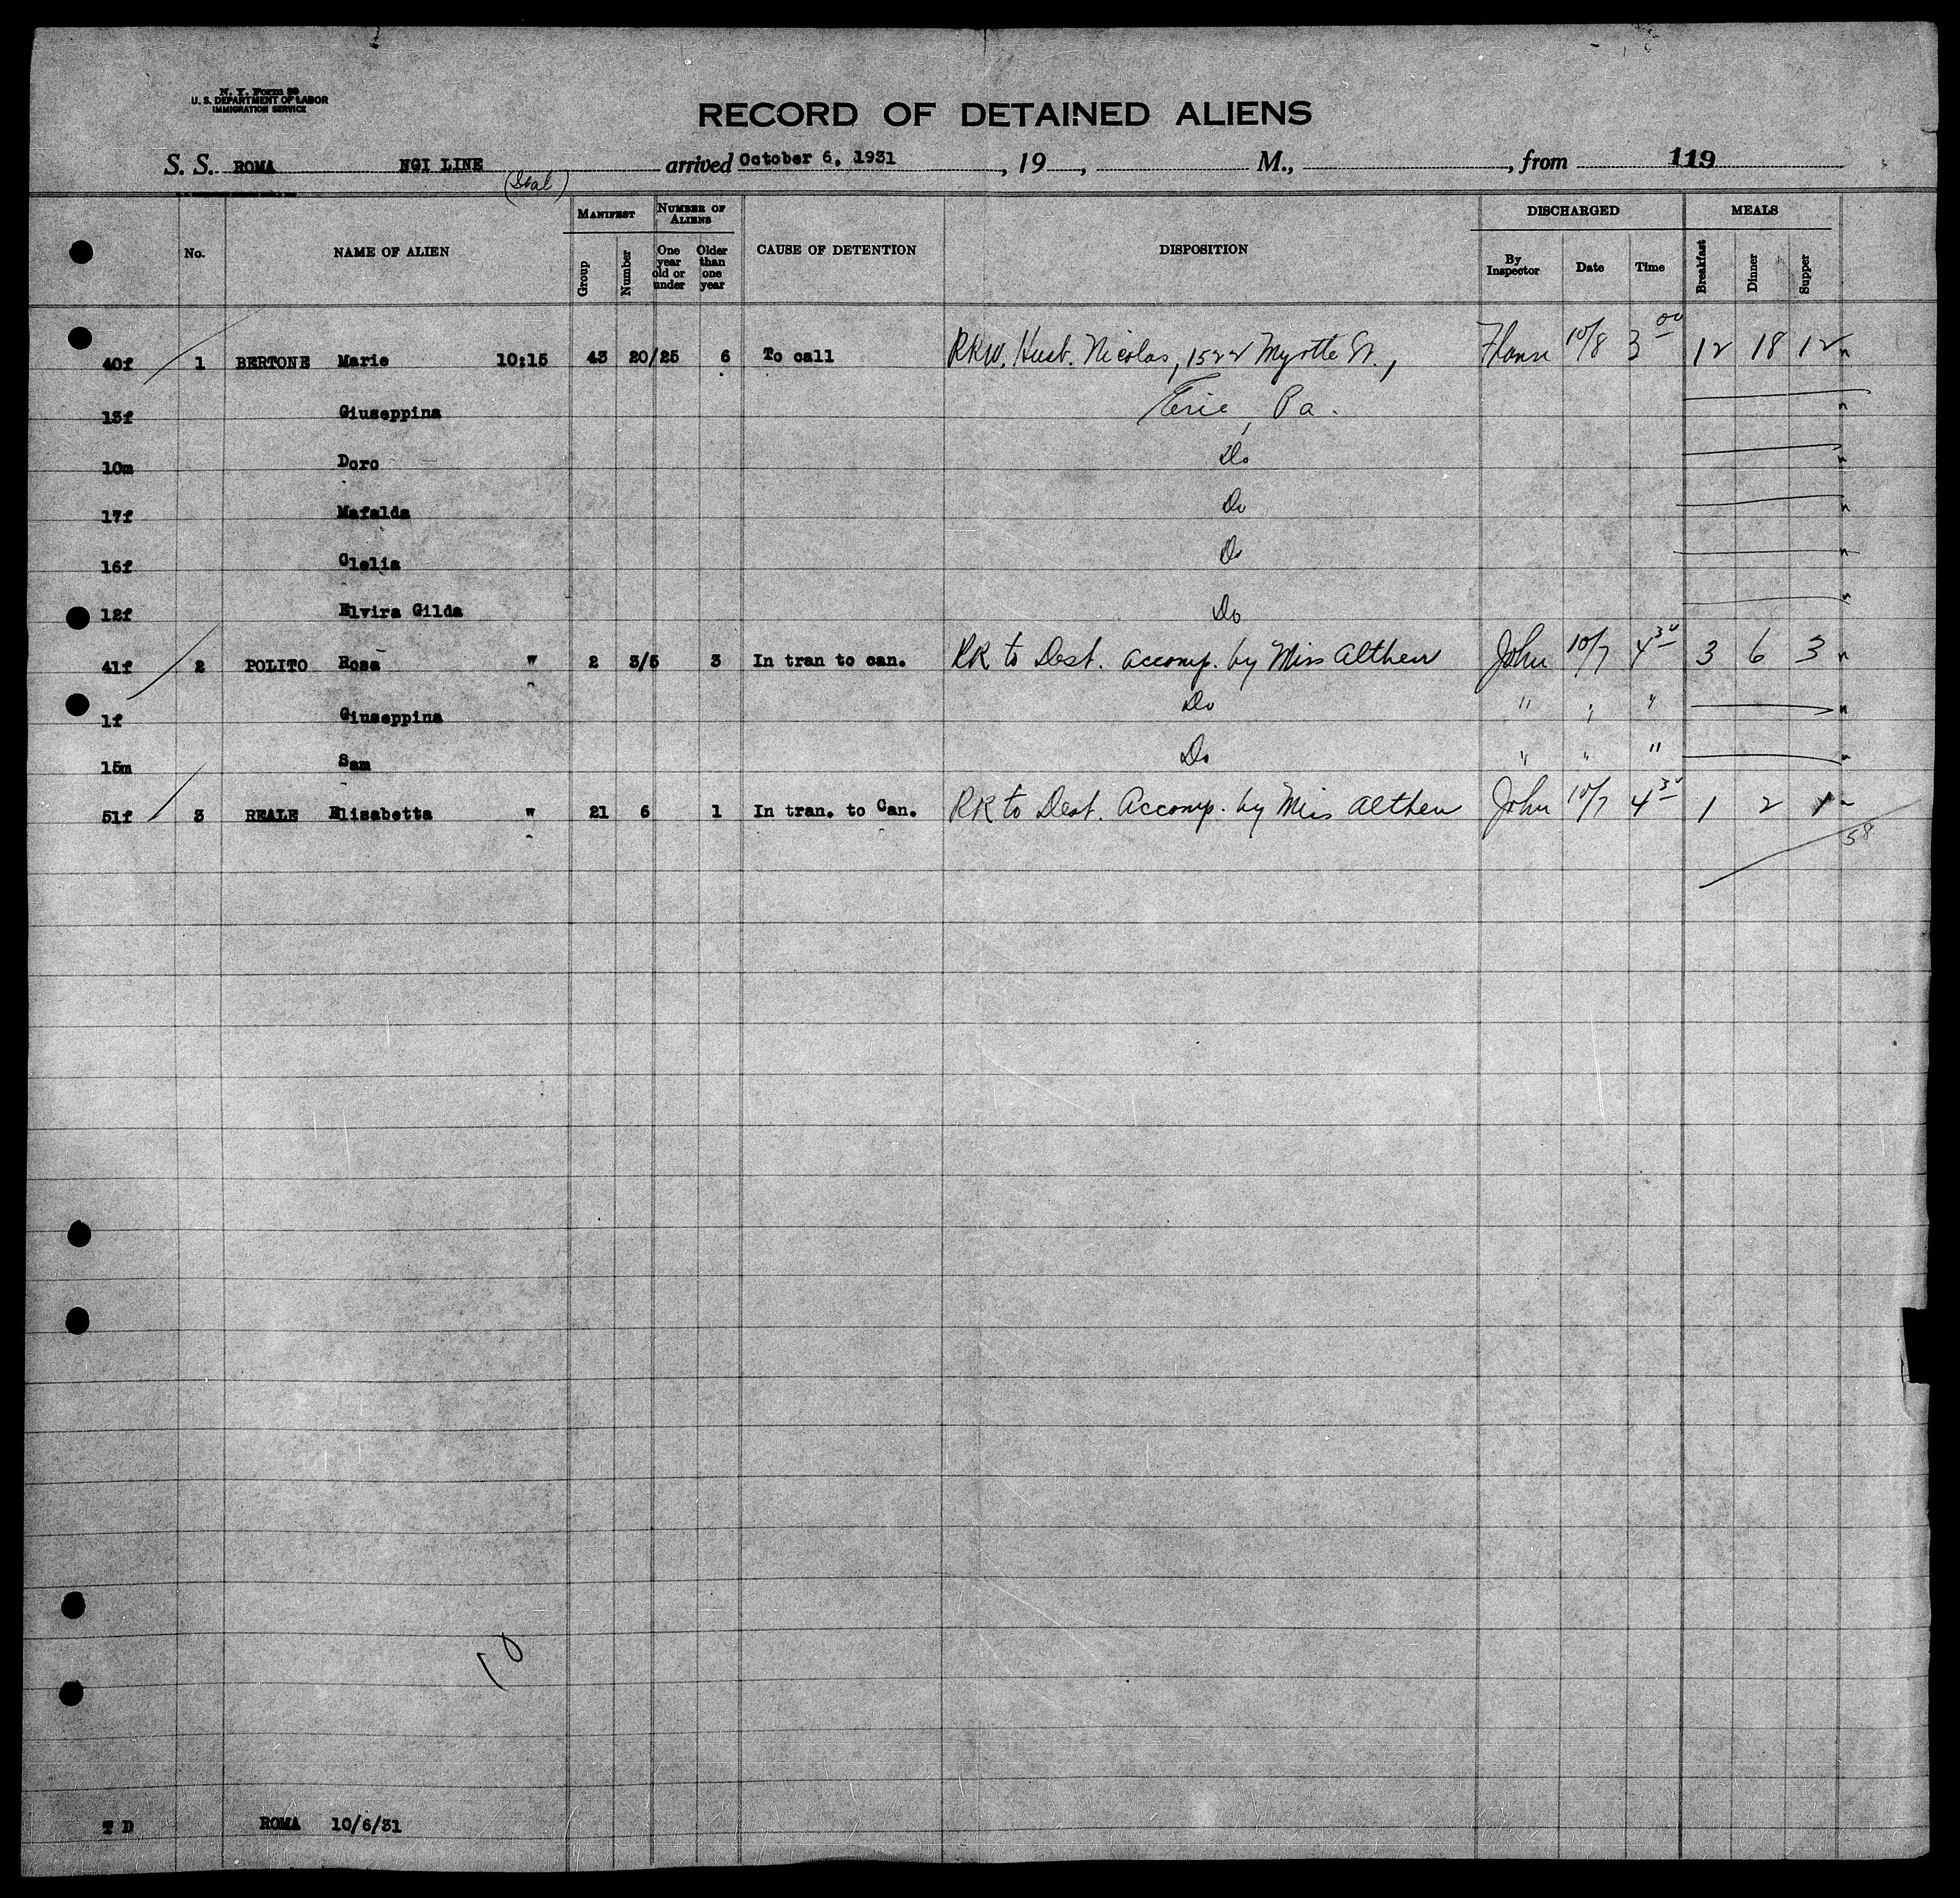 N. Y. Form 99
U. S. DEPARTMENT OF LABOR
IMMIGRATION SERVICE
RECORD OF DETAINED ALIENS
S. S. ROMA NGI LINE arrived October 6, 1931, 19__, M., , from 119
(Seal)
No. NAME OF ALIEN MANIFEST Group Number NUMBER OF ALIENS One year old or under Older than one year CAUSE OF DETENTION DISPOSITION DISCHARGED By Inspector Date Time MEALS Breakfast Dinner Supper
40f 1 BERTONE Marie 10:15 43 20/25 6 To call RRW. Husb. Nicolas, 1522 Myrtle St., 10/8 3 00 12 18 12
13f Giuseppina Erie, Pa.
10m Doro Do
17f Mafalda Do
16f Clelia Do
12f Elvira Gilda Do
41f 2 POLITO Rosa W 2 3/5 3 In tran to can. RR to Dest. accomp. by Miss Althen John 10/7 4 30 3 6 3
1f Giuseppina Do " " "
15m Sam Do " " "
51f 3 REALE Elisabetta W 21 6 1 In tran. to Can. RR to Dest. Accomp. by Miss Althen John 10/7 4 30 1 2 1
58
10
T D ROMA 10/6/31